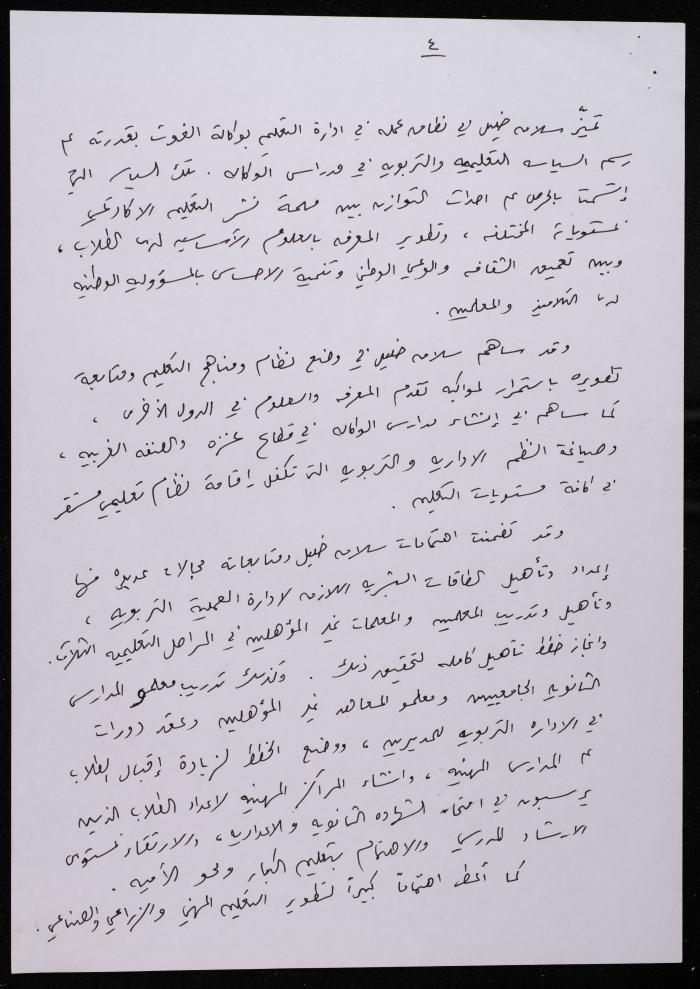 ٤
تميّز سلامه خليل في نظام عمله في ادارة التعليم بوكالة الغوث بقدرته على
رسم السياسه التعليميه والتربويه في مدارس الوكاله. تلك السياسه التي
إتسمت بالحرص على احداث التوازن بين مهمة نشر التعليم الاكاديمي
بمستوياته المختلفه ، وتطوير المعرفه بالعلوم الأساسيه لدى الطلاب ،
وبين تعميق الثقافه والوعي الوطني وتنمية الاحساس بالمسؤوليه الوطنيه
لدى التلاميذ والمعلمين .
وقد ساهم سلامه خليل في وضع نظام ومناهج التعليم ومتابعة
تطويره باستمرار لمواكبة تقدم المعرفه والعلوم في الدول الأخرى ،
كما ساهم في إنشاء مدارس الوكاله في قطاع غزه والضفه الغربيه ،
وصياغة النظم الاداريه والتربويه التى تكفل إقامة نظام تعليمي مستقر
في كافة مستويات التعليم .
وقد تضمنت اهتمامات سلامه خليل ومتابعاته مجالات عديده منها
إعداد وتأهيل الطاقات البشريه اللازمه لادارة العملية التربويه ،
وتأهيل وتدريب المعلمين والمعلمات غير المؤهلين في المراحل التعليميه الثلاث.
وانجاز خطط تأهيل كامله لتحقيق ذلك . وكذلك تدريب معلمو المدارس
الثانويه الجامعيين ومعلمو المعاهد غير المؤهلين وعقد دورات
في الاداره التربويه للمديرين ، ووضع الخطط لزيادة إقبال الطلاب
على المدارس المهنيه ، وانشاء المراكز المهنيه لاعداد الطلاب الذين
يرسبون في امتحان الشهاده الثانويه والاعداديه ، والارتقاء بمستوى
الارشاد المدرسي والاهتمام بتعليم الكبار ومحو الأميه .
كما أعطى اهتماماً كبيراً لتطوير التعليم المهني والزراعي والصناعي .